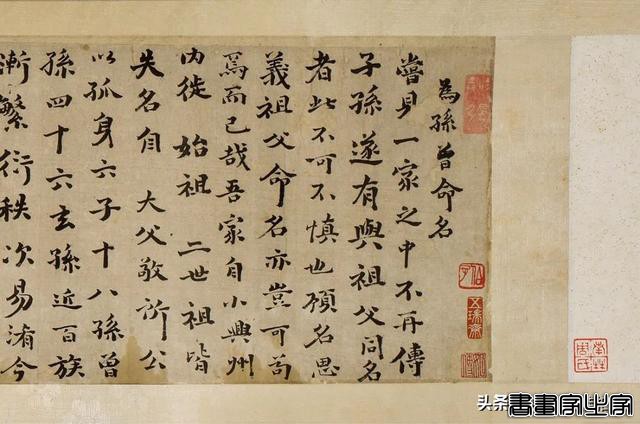 為孫曾命名
嘗見一家之中不再傳
子孫遂有與祖父同名
者此不可不慎也顧名思
義祖父命名亦豈可苟
焉而已哉吾家自小興州
內徙始祖二世祖皆
失名自大父敬所公
以孤身六子十八孫曾
孫四十六玄孫近百族
漸繁衍秩次易淆今
五瑞齋
头条
書畫家必字